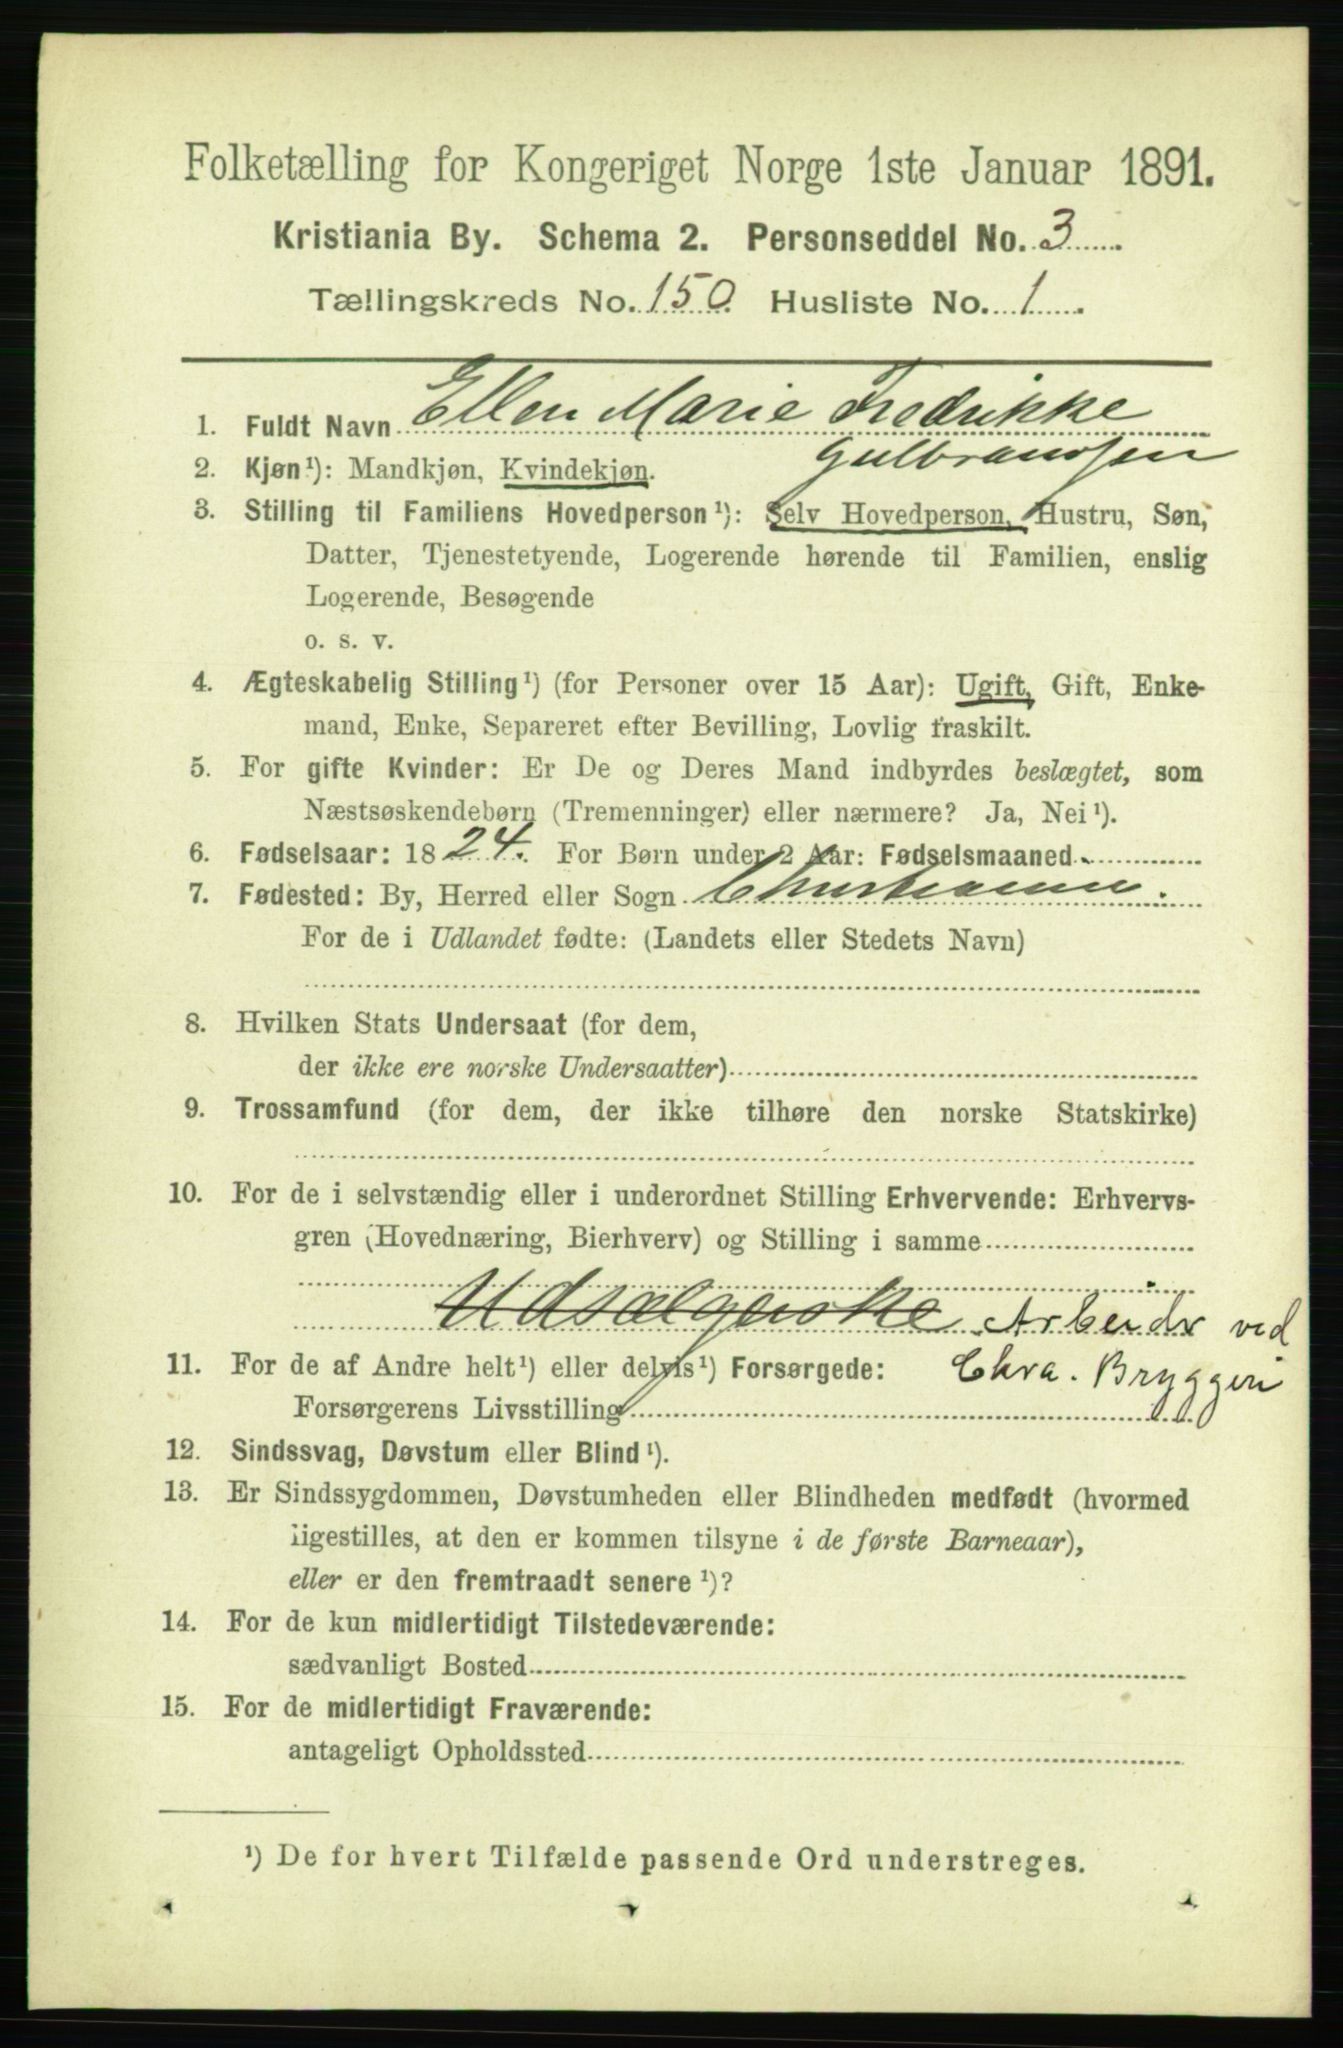 Folketælling for Kongeriget Norge 1ste Januar 1891.
Kristiania By. Schema 2. Personseddel No. 3
Tællingskreds No. 150 Husliste No. 1
1. Fuldt Navn Ellen Marie Fredrikke
Gulbranssen
2. Kjøn¹): Mandkjøn, Kvindekjøn.
3. Stilling til Familiens Hovedperson¹): Selv Hovedperson, Hustru, Søn,
Datter, Tjenestetyende, Logerende hørende til Familien, enslig
Logerende, Besøgende
o. s. v.
4. Ægteskabelig Stilling¹) (for Personer over 15 Aar): Ugift, Gift, Enke-
mand, Enke, Separeret efter Bevilling, Lovlig fraskilt.
5. For gifte Kvinder: Er De og Deres Mand indbyrdes beslægtet, som
Næstsøskendebørn (Tremenninger) eller nærmere? Ja, Nei¹).
6. Fødselsaar: 1824. For Børn under 2 Aar: Fødselsmaaned
7. Fødested: By, Herred eller Sogn Christiania.
For de i Udlandet fødte: (Landets eller Stedets Navn)
8. Hvilken Stats Undersaat (for dem,
der ikke ere norske Undersaatter)
9. Trossamfund (for dem, der ikke tilhøre den norske Statskirke)
10. For de i selvstændig eller i underordnet Stilling Erhvervende: Erhvervs-
gren (Hovednæring, Bierhverv) og Stilling i samme
Udsælgerske Arbeider ved
Chra. Bryggeri
11. For de af Andre helt¹) eller delvis¹) Forsørgede:
Forsørgerens Livsstilling
12. Sindssvag, Døvstum eller Blind¹).
13. Er Sindssygdommen, Døvstumheden eller Blindheden medfødt (hvormed
ligestilles, at den er kommen tilsyne i de første Barneaar),
eller er den fremtraadt senere¹)?
14. For de kun midlertidigt Tilstedeværende:
sædvanligt Bosted
15. For de midlertidigt Fraværende:
antageligt Opholdssted
¹) De for hvert Tilfælde passende Ord understreges.